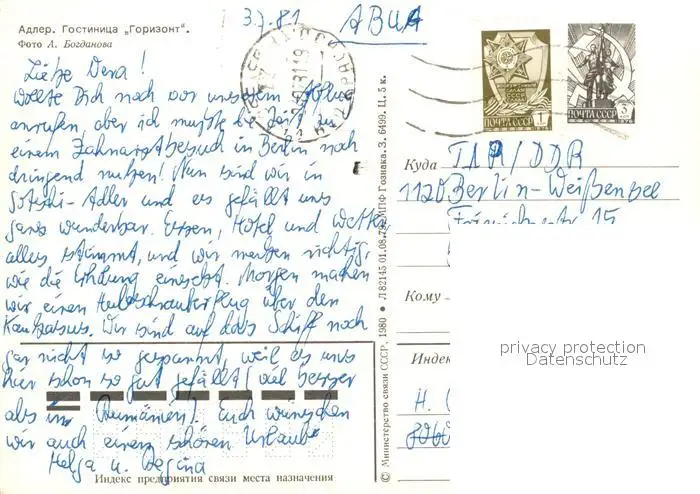 Адлер. Гостиница „Горизонт".
Фото А. Богданова
3.7.81
АВИА
Liebe Vera!
Wollte Dich noch vor unserem Abflug
anrufen, aber ich mußte die Zeit zu
einem Zahnarztbesuch in Berlin noch
dringend nutzen! Nun sind wir in
Sotschi-Adler und es gefällt uns
ganz wunderbar. Essen, Hotel und Wetter
alles stimmt, und wir merken richtig,
wie die Erholung einsetzt. Morgen machen
wir einen Hubschrauberflug über den
Kaukasus. Wir sind auf das Schiff noch
gar nicht so gespannt, weil es uns
hier schon so gut gefällt (viel besser
als in Rumänien). Euch wünschen
wir auch einen schönen Urlaub
Helga u. Regina
Индекс предприятия связи места назначения
© Министерство связи СССР, 1980 • Л 82145 01.08.79. МПФ Гознака. З. 6499. Ц. 5 к.
1
ПОЧТА СССР
ПОЧТА СССР
Куда
ГДР/DDR
1120 Berlin-Weißensee
15
Кому
Индек
H.
privacy protection
Datenschutz